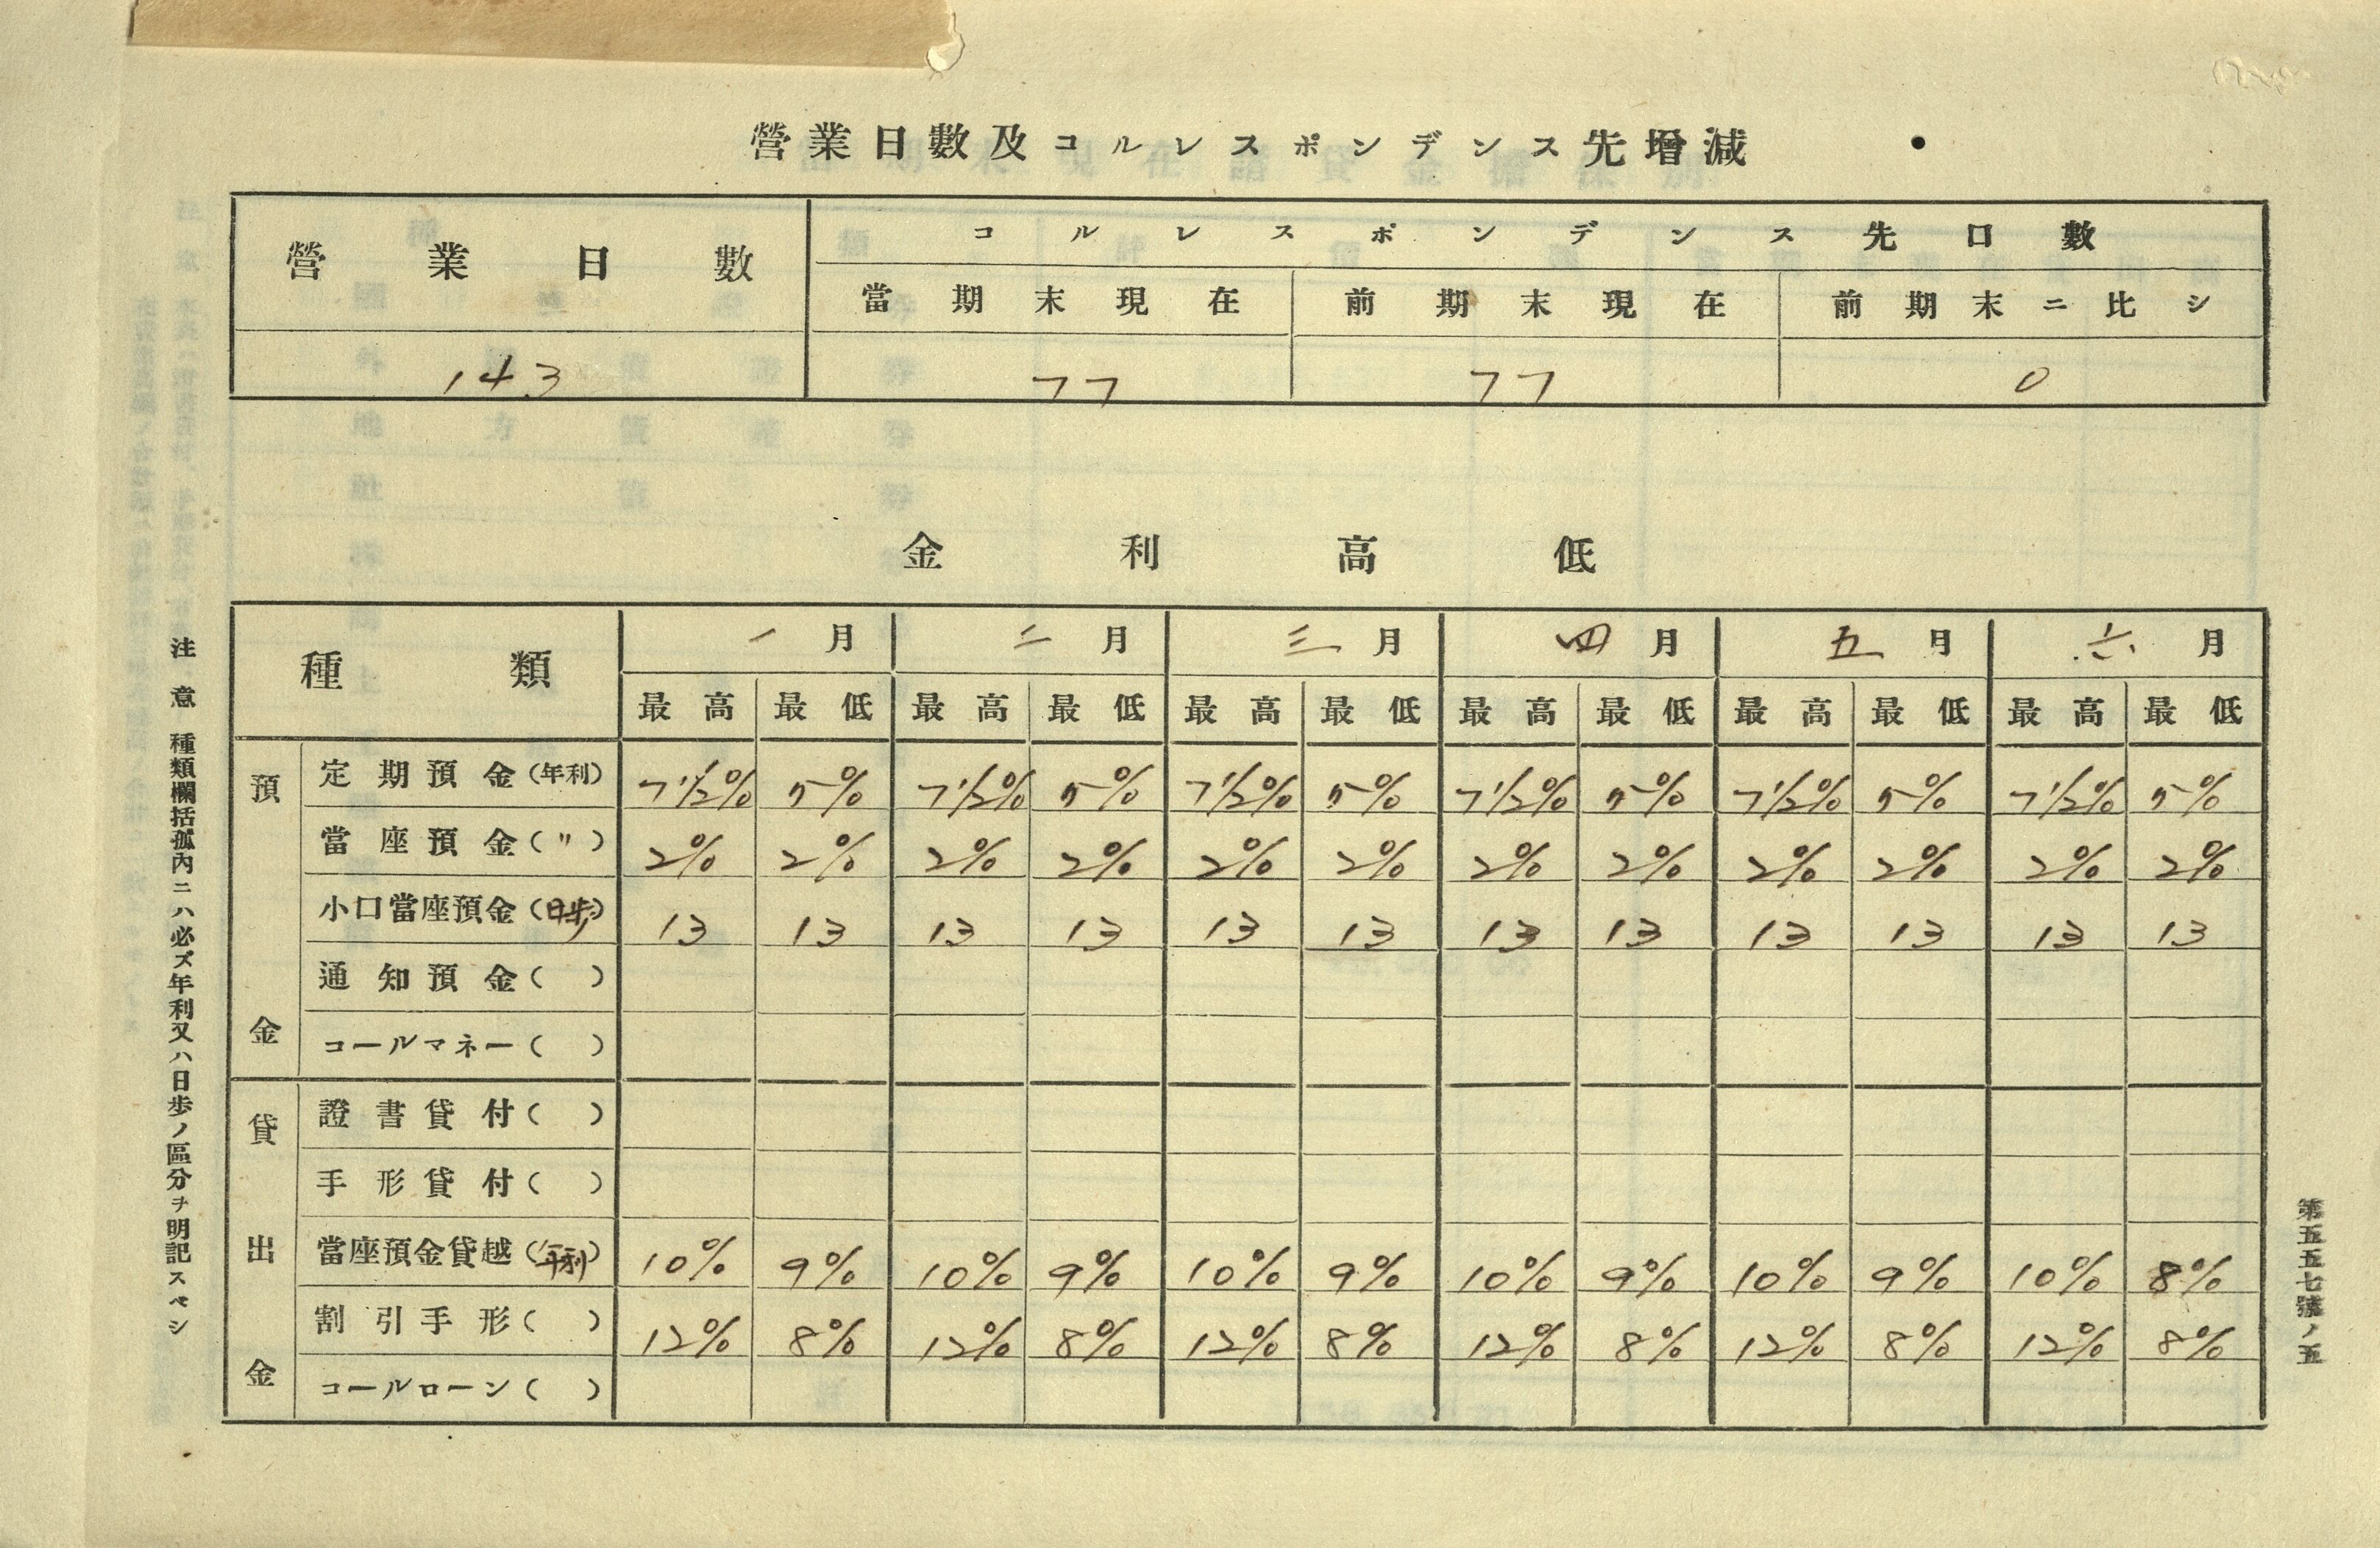 營業日數及コルレスポンデンス先增減
營業日數 コルレスポンデンス先口數
當期末現在 前期末現在 前期末ニ比シ
143 77 77 0
金利高低
種類 一月 二月 三月 四月 五月 六月
最高 最低 最高 最低 最高 最低 最高 最低 最高 最低 最高 最低
預金
定期預金(年利) 7 1/2% 5% 7 1/2% 5% 7 1/2% 5% 7 1/2% 5% 7 1/2% 5% 7 1/2% 5%
當座預金(〃) 2% 2% 2% 2% 2% 2% 2% 2% 2% 2% 2% 2%
小口當座預金(日歩) 13 13 13 13 13 13 13 13 13 13 13 13
通知預金( )
コールマネー( )
貸出金
證書貸付( )
手形貸付( )
當座預金貸越(年利) 10% 9% 10% 9% 10% 9% 10% 9% 10% 9% 10% 8%
割引手形( ) 12% 8% 12% 8% 12% 8% 12% 8% 12% 8% 12% 8%
コールローン( )
注意 種類欄括孤內ニハ必ズ年利又ハ日歩ノ區分ヲ明記スベシ
第五五七號ノ五